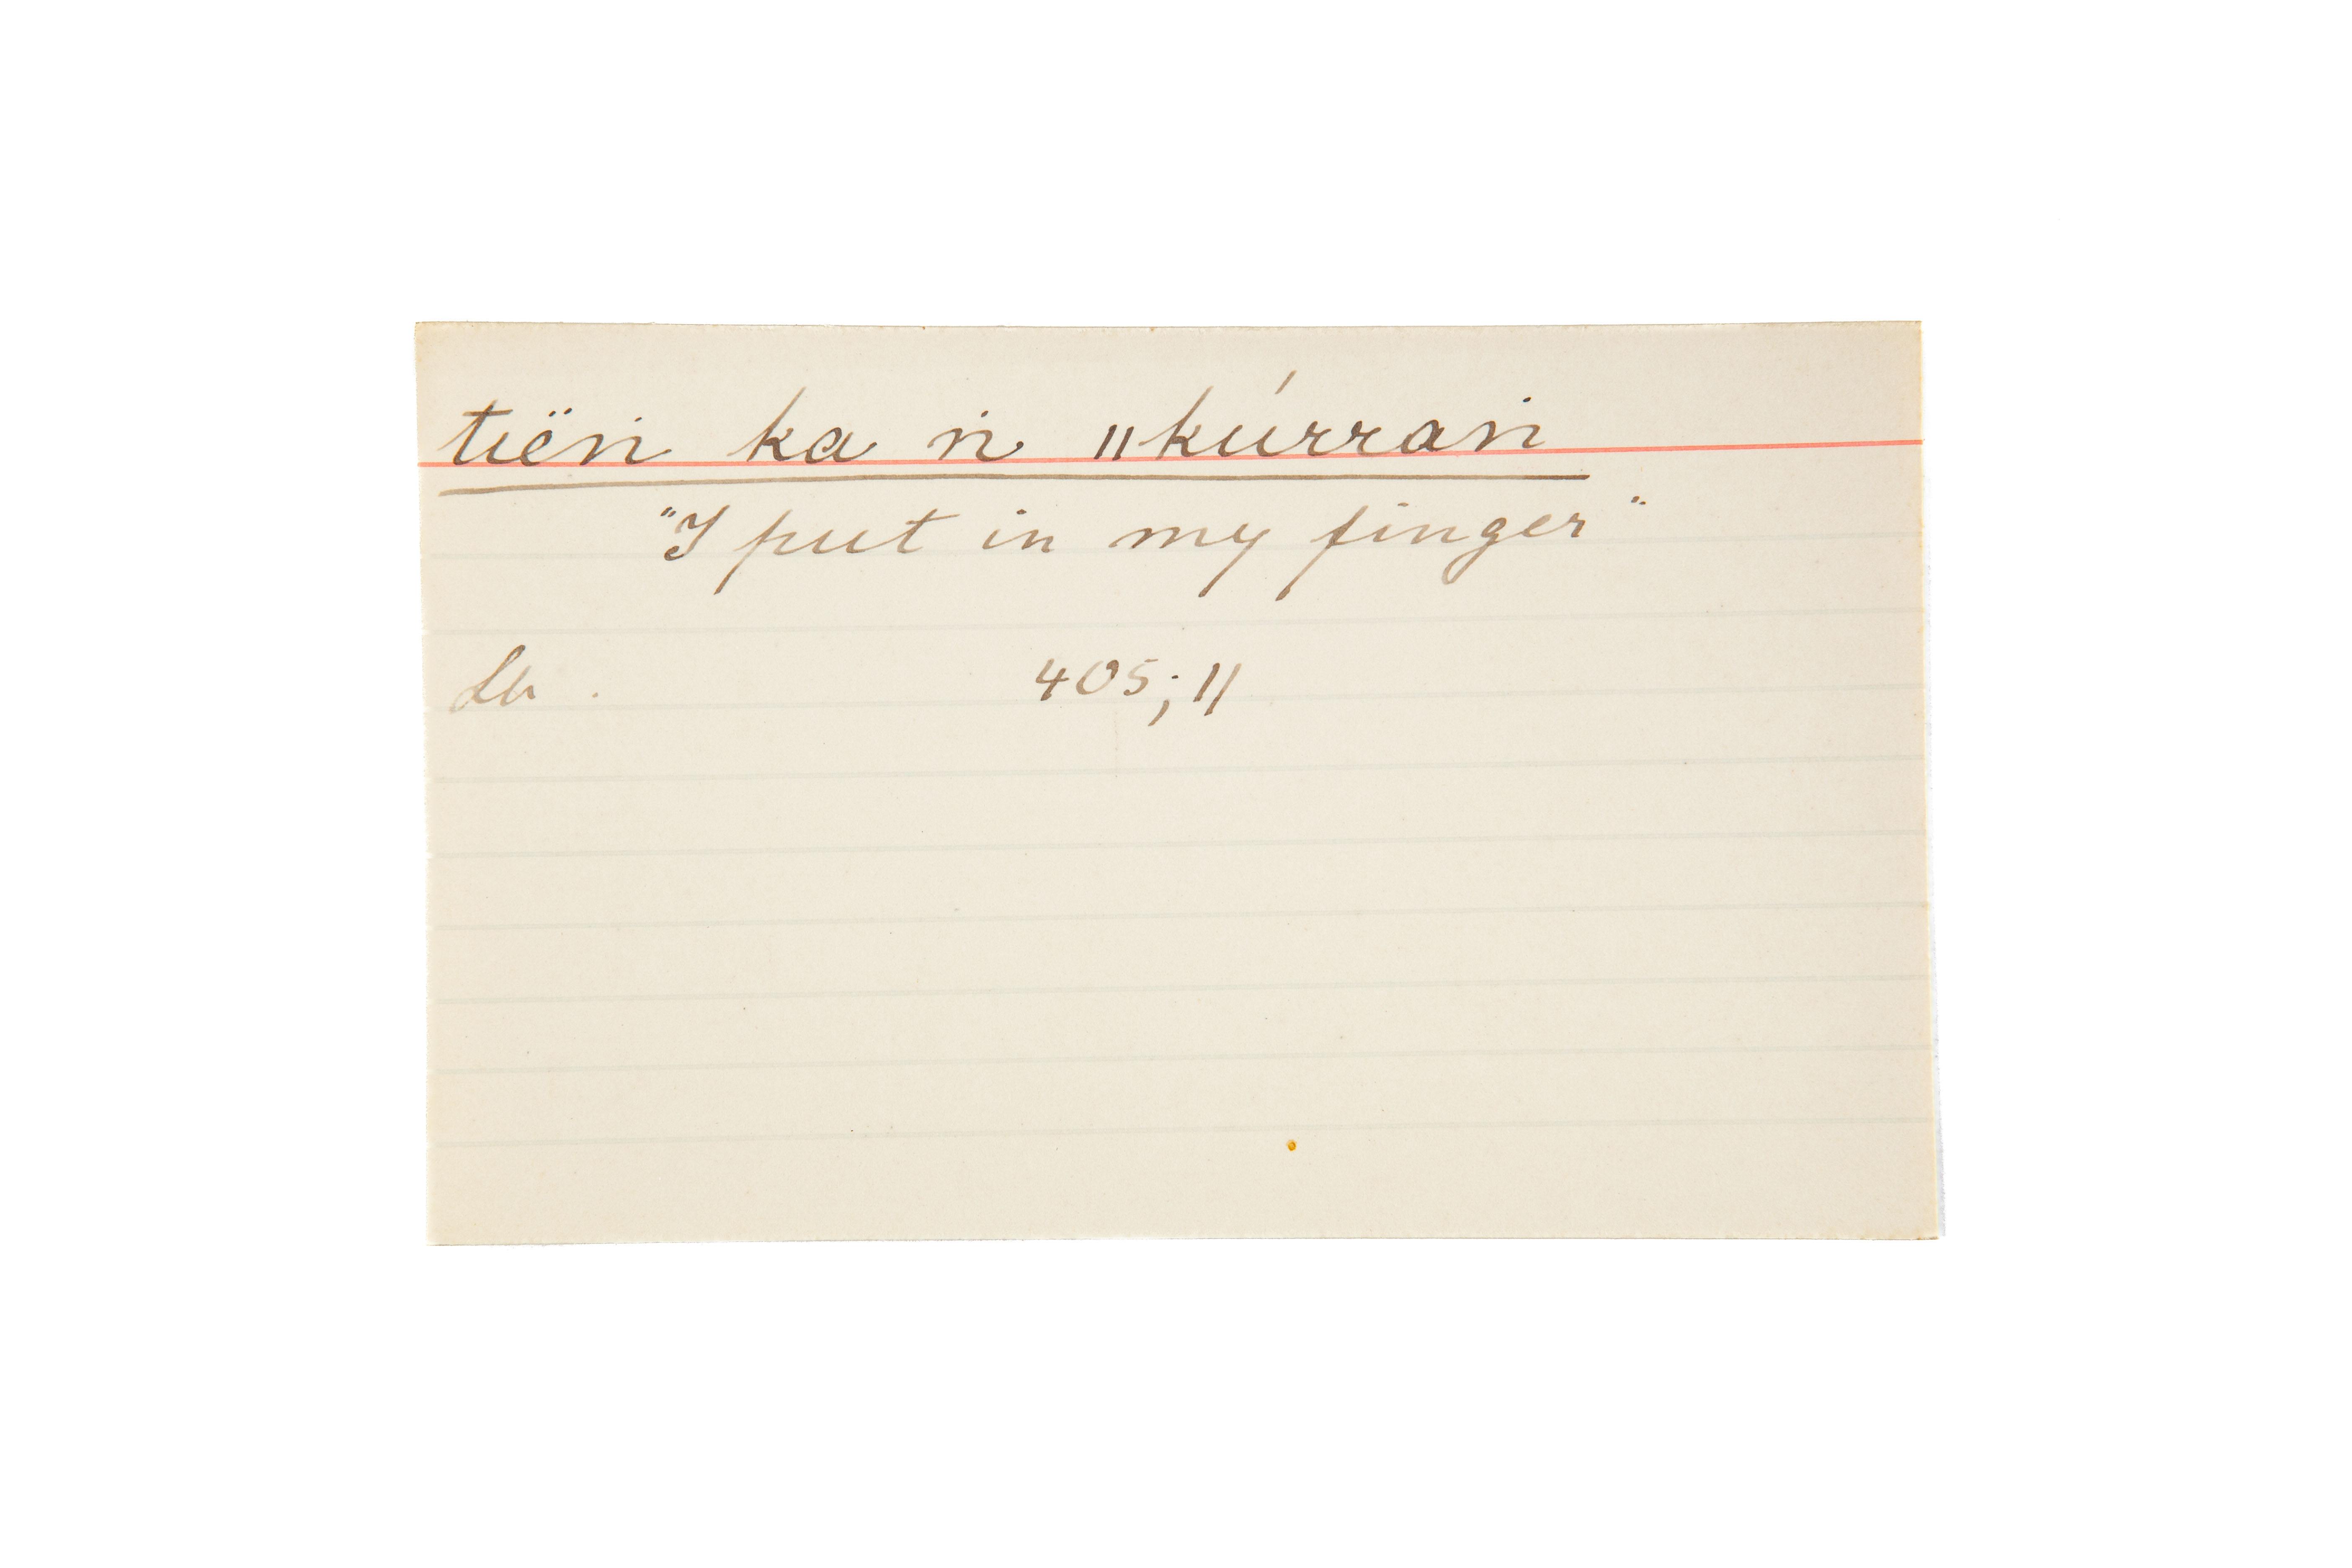 tiëṅ ka ṅ ǁkúrraṅ
"I put in my finger"
Lb. 405; 11